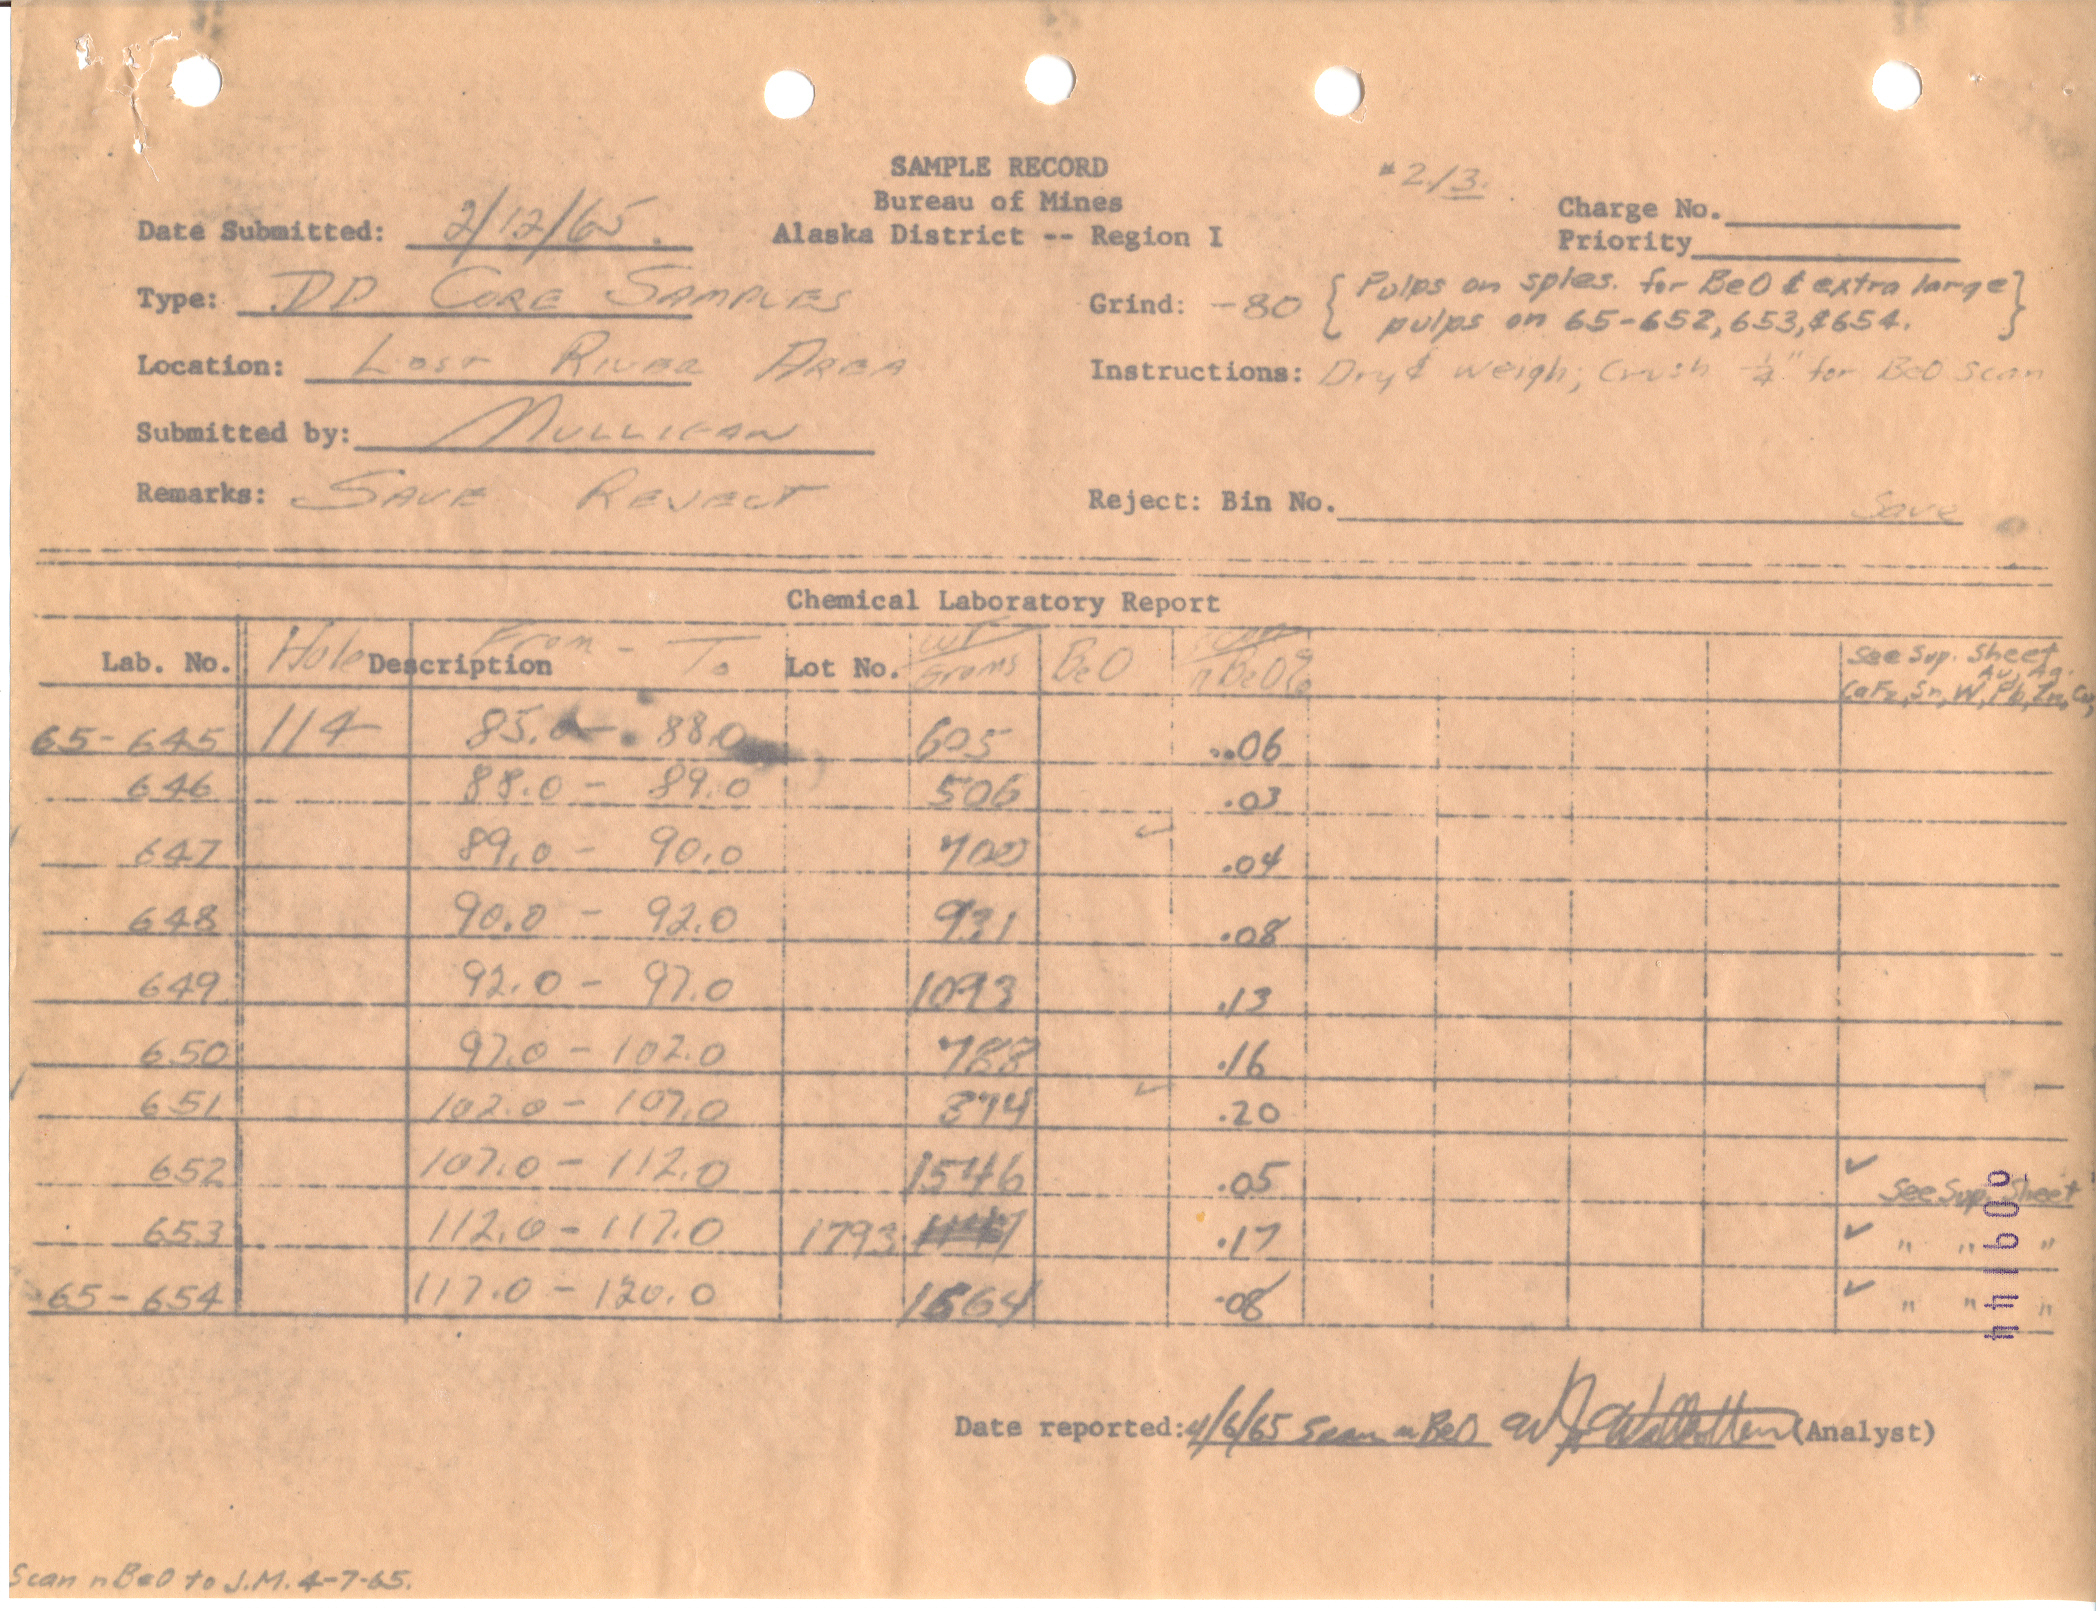 SAMPLE RECORD
Bureau of Mines
Alaska District -- Region I
#2/3.
Charge No.
Priority
Date Submitted: 2/12/65.
Type: DD CORE SAMPLES
Grind: -80 { Pulps on sples. for BeO & extra large }
pulps on 65-652, 653, & 654.
Location: LOST RIVER AREA
Instructions: Dry & weigh; Crush -1/4" for BeO scan
Submitted by: MULLIGAN
Remarks: SAVE REJECT
Reject: Bin No. Save
Chemical Laboratory Report
Lab. No. Hole Description From - To Lot No. WT Grams BeO Scan nBeO% See Sup. Sheet Au, Ag. CaF2, Sn, W, Pb, Zn, Cu,
65-645 114 85.0 - 88.0 605 .06
646 88.0 - 89.0 506 .03
647 89.0 - 90.0 700 ✓ .04
648 90.0 - 92.0 931 .08
649 92.0 - 97.0 1093 .13
650 97.0 - 102.0 788 .16
651 102.0 - 107.0 374 ✓ .20
652 107.0 - 112.0 1546 .05 ✓ See Sup. Sheet
653 112.0 - 117.0 1793 .17 ✓ " " "
65-654 117.0 - 120.0 1564 .08 ✓ " " "
Date reported: 4/6/65 Scan nBeO (Analyst)
Scan nBeO to J.M. 4-7-65.